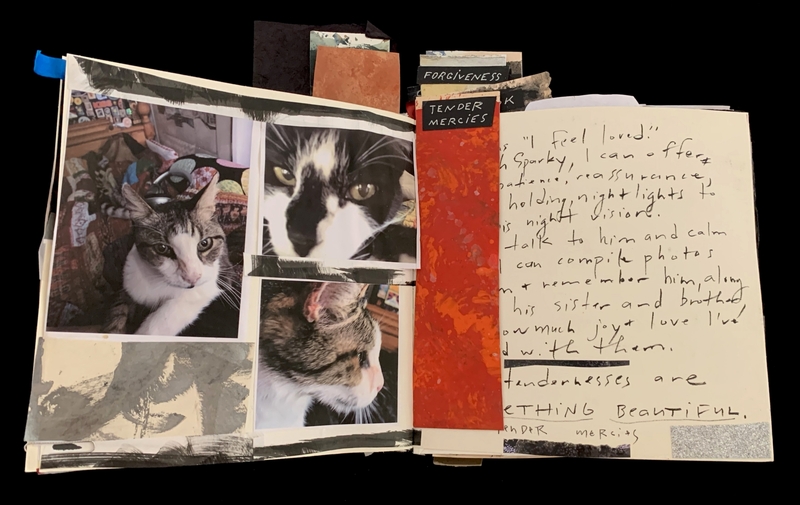 FORGIVENESS
K
TENDER
MERCIES
"I feel loved!"
h Sparky, I can offer
patience, reassurance,
holding, nightlights to
is night vision.
talk to him and calm
I can compile photos
m + remember him, along
his sister and brother
ow much joy + love I've
d with them.
tendernesses are
ETHING BEAUTIFUL.
ENDER MERCIES